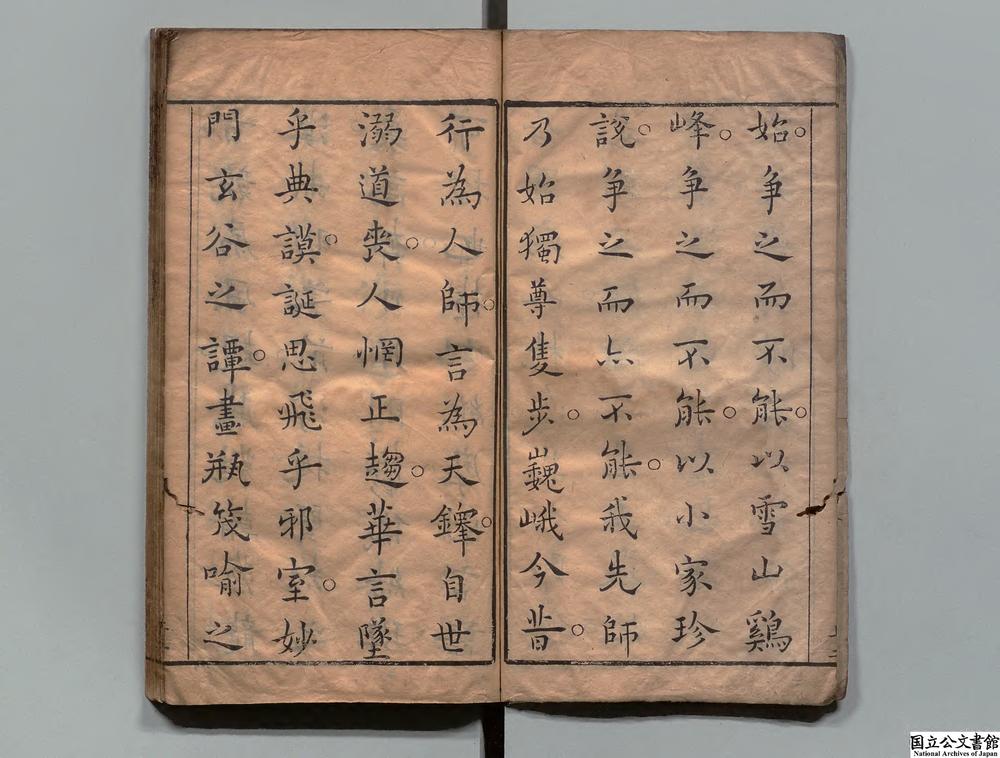 始争之而不能以雪山鷄
峰争之而不能以小家珍
說争之而亦不能我先師
乃始獨尊隻步巍峨今昔
行為人師言為天鐸自世
溺道喪人惘正趨華言墜
乎典謨誕思飛乎邪室妙
門玄谷之譚畫瓶筏喻之
国立公文書館
National Archives of Japan